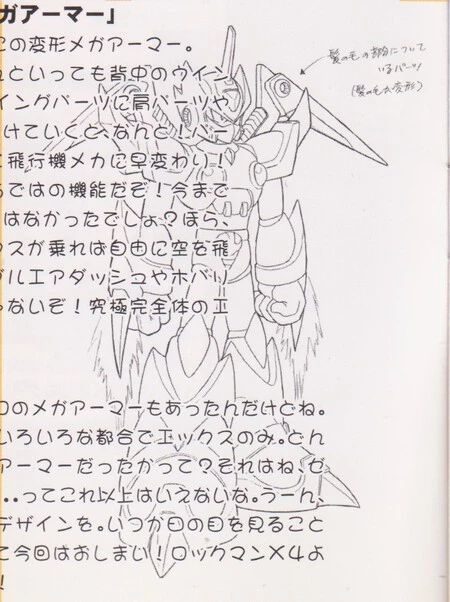 ガアーマー」
この変形メガアーマー。
んといっても背中のウイン
イングパーツに肩パーツや
けていくと、なんと！パー
に飛行機メカに早変わり！
らではの機能だぞ！今まで
はなかったでしょ？ほら、
クスが乗れば自由に空を飛
グルエアダッシュやホバリ
らないぞ！究極完全体のエ
髪の毛の部分について
いるパーツ
(髪の毛が変形)
ロのメガアーマーもあったんだけどね。
いろいろな都合でエックスのみ。どん
アーマーだったかって？それはね、ゼ
‥ってこれ以上はいえないな。うーん、
デザインを。いつか日の目を見ること
て今回はおしまい！ロックマンX4よ
！